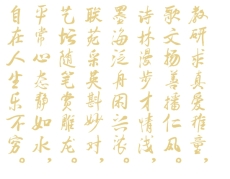 教研求真爱稚童，
歌文扬善播仁风。
诗林漫步才情浅，
墨海泛舟闲兴浓。
联苑采英斟妙对，
艺坛随笔赏雕龙。
平常心态静如水，
自在人生乐不穷。